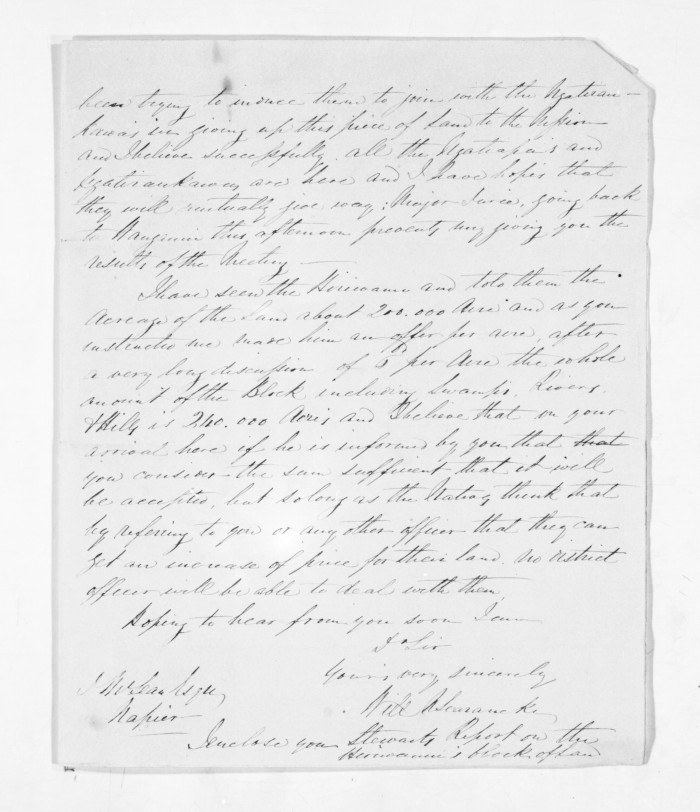 been trying to induce them to join with the Ngatirau-
kawa's in giving up this piece of Land to the Mission
and I believe successfully. all the Ngatiapa's and
Ngatiraukawas are here and I have hopes that
they will mutually give way; Major Durie, going back
to Wanganui this afternoon prevents my giving you the
results of the Meeting —
I have seen the Hiriwanu and told them the
Acreage of the Land about 200.000 Acres and as you
instructed me made him an offer per acre, after
a very long discussion of 5d per Acre the whole
amount of the Block including Swamps, Rivers,
& Hills is 240.000 Acres and I believe that on your
arrival here if he is informed by you that that
you consider the sum sufficient that it will
be accepted, but so long as the Natives think that
by referring to you or any other officer that they can
get an increase of price for their land no district
officer will be able to deal with them.
Hoping to hear from you soon I am
Dr Sir
Yours very sincerely
Will
McLean Esqre
Napier
I enclose you Stewarts Report on the
Hiriwanu's block of Land